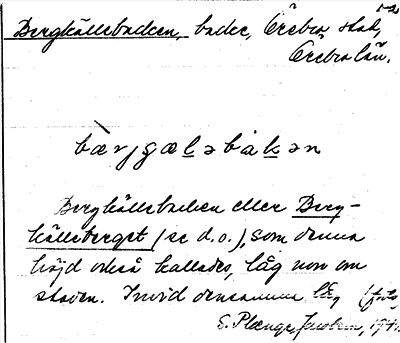 Bergkällebacken, backe, Örebro stad,
Örebro län.
bærjgælə båkən
Bergkällebacken eller Berg-
källeberget (se d.o.), som denna
höjd också kallades, låg norr om
staden. Invid densamma
E. Plænge Jacobson, 1941.